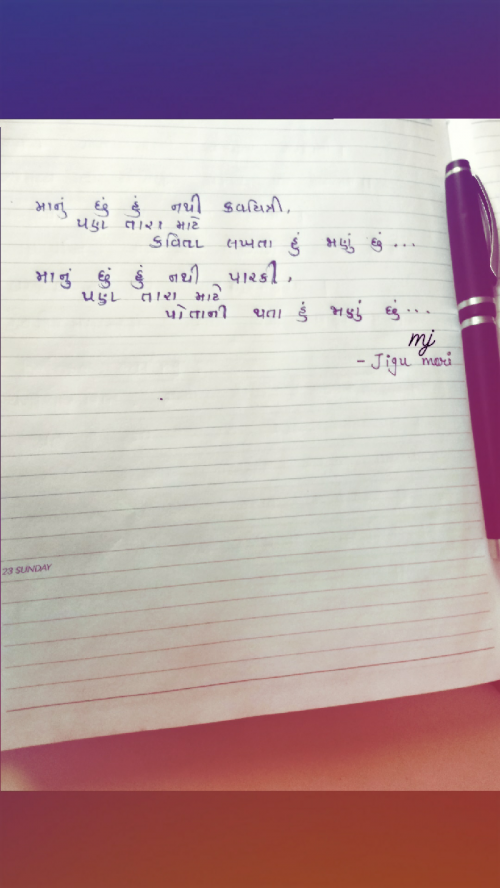 માનું છું હું નથી કવયિત્રી,
પણ તારા માટે
કવિતા લખતા હું ભણું છું...
માનું છું હું નથી પારકી,
પણ તારા માટે
પોતાની થતા હું ભણું છું...
mj
- Jigu mori
23 SUNDAY